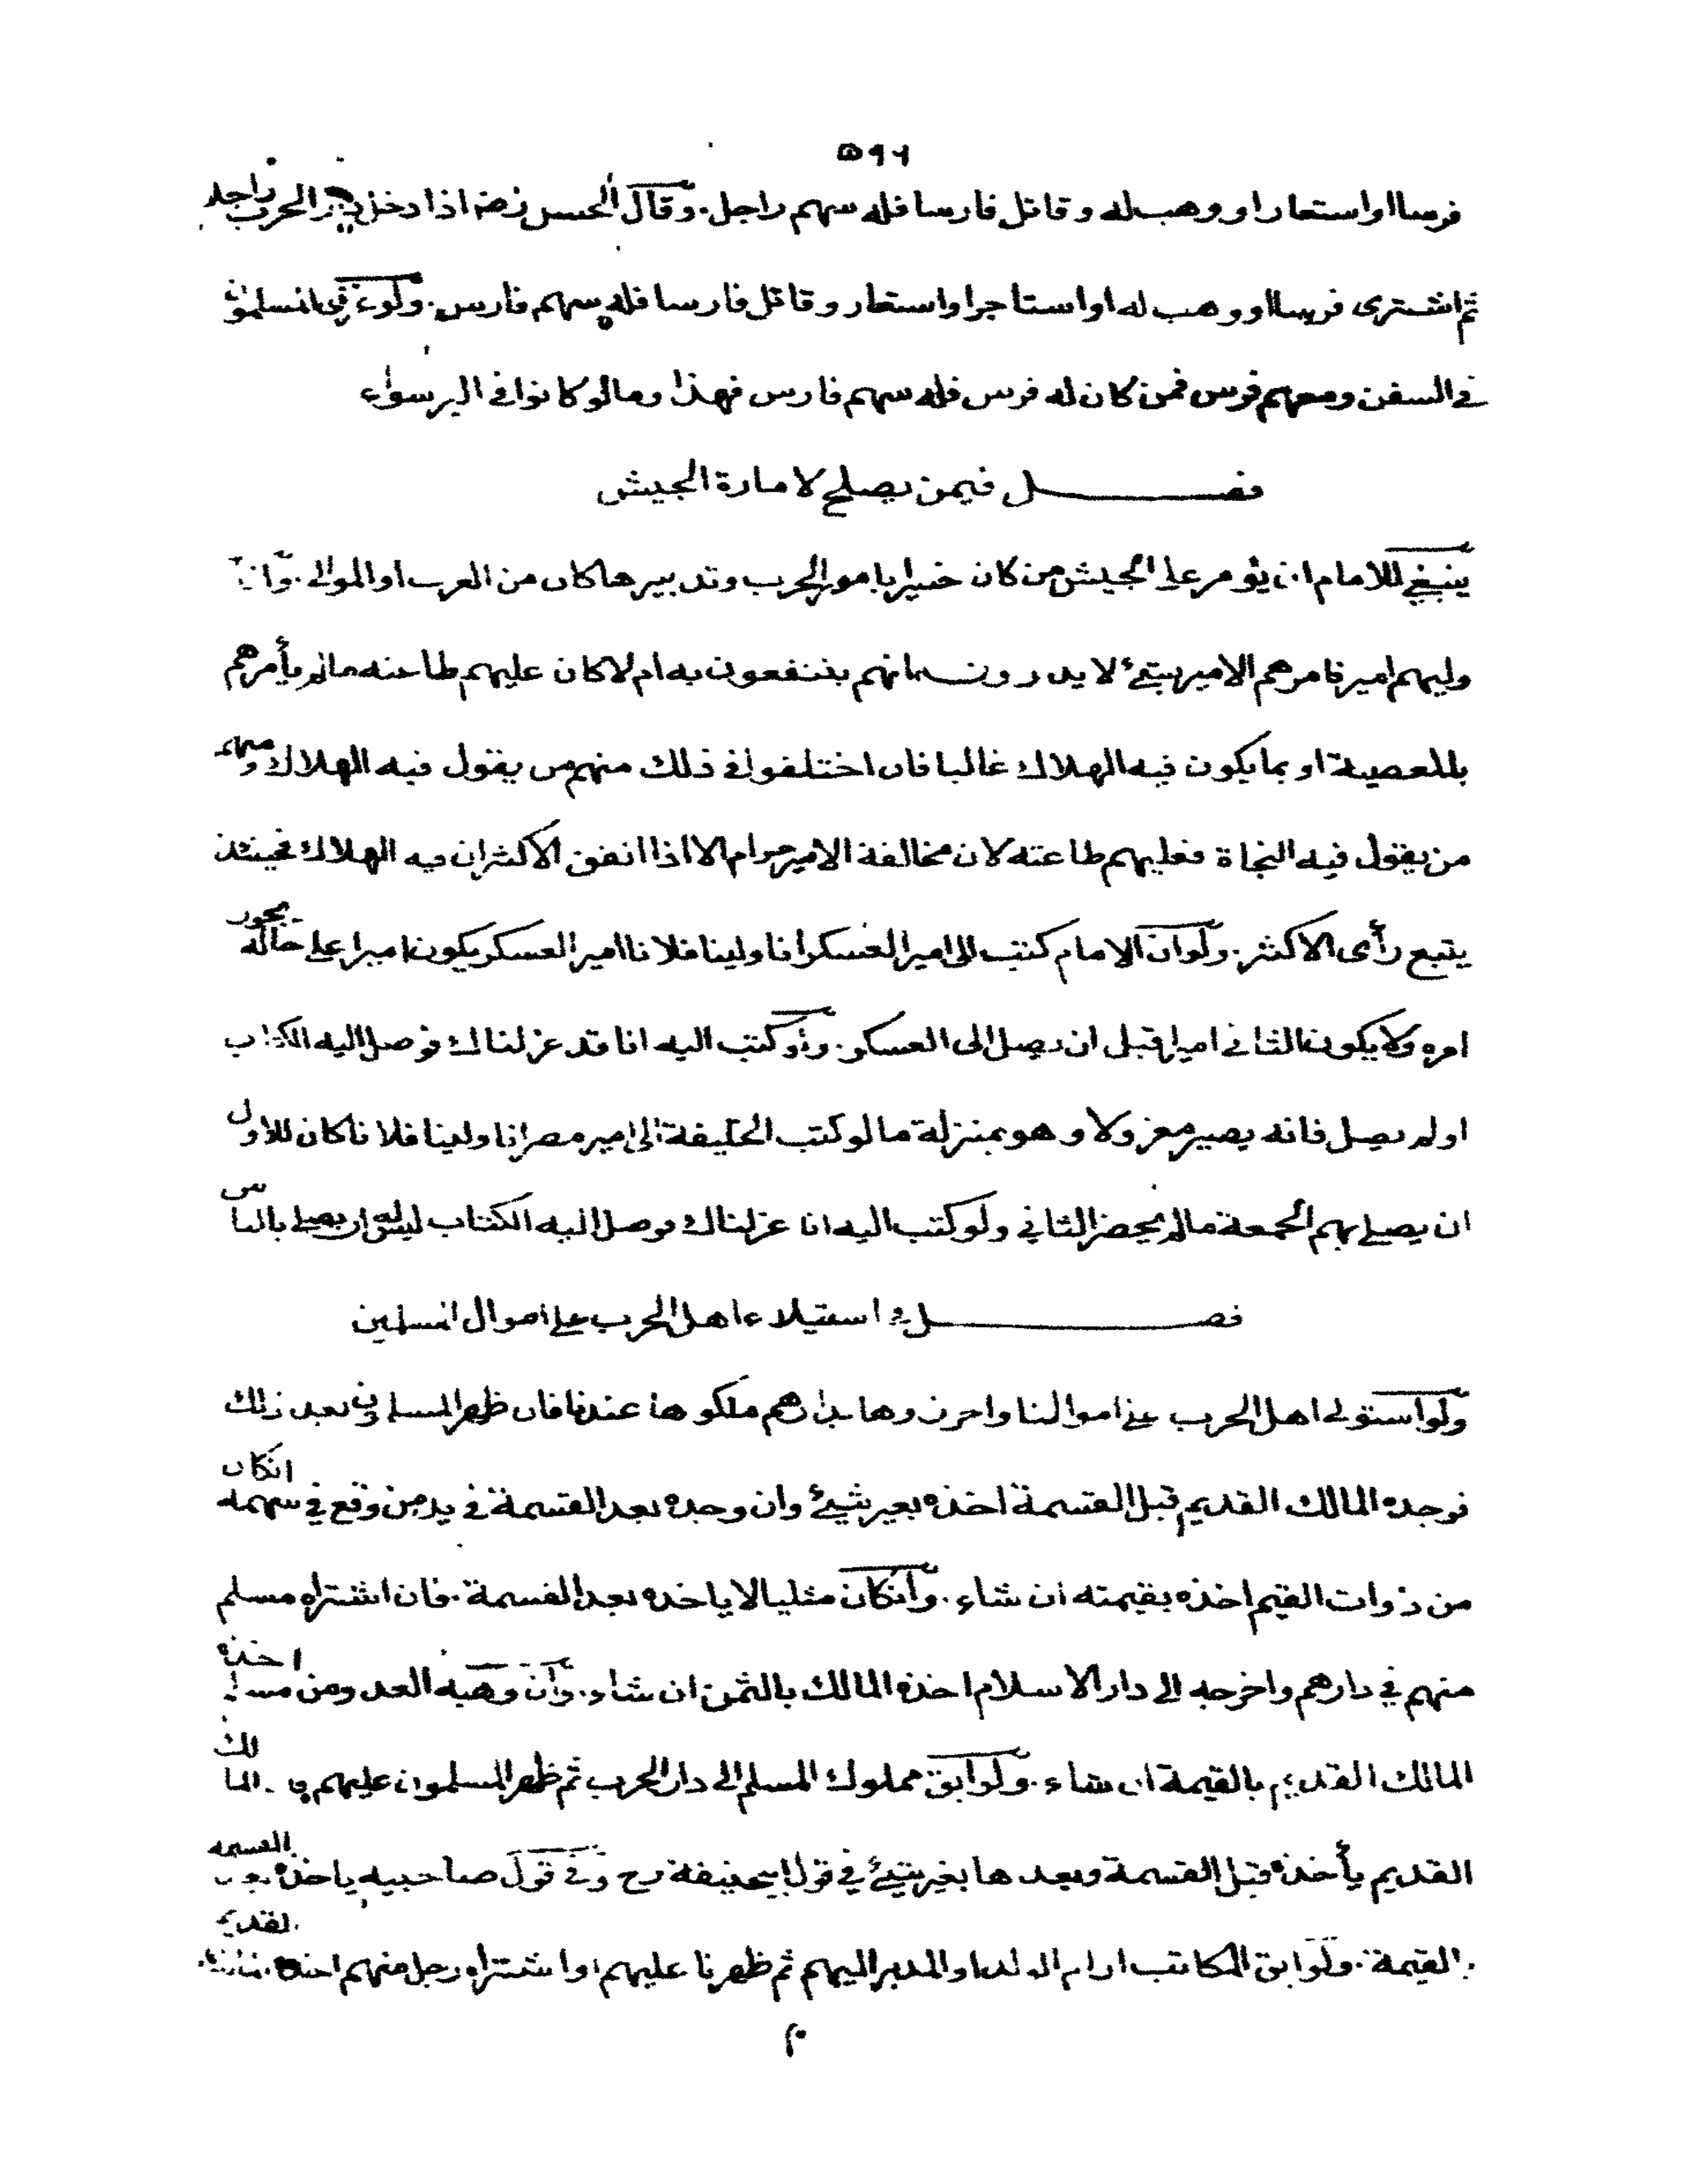 ٥٩٦
فرسا او استعار او وهب له وقاتل فارسا فله سهم راجل. وقال الحسن رضه اذا دخل الحرب راجلا
ثم اشترى فرسا او وهب له او استاجر او استعار وقاتل فارسا فله سهم فارس. ولو غزى المسلمون
في السفن ومعهم فرس فمن كان له فرس فله سهم فارس فهذا وما لو كانوا في البر سواء
فصل فيمن يصلح لامارة الجيش
ينبغي للامام ان يؤمر على الجيش من كان خبيرا بامور الحرب وتدبيرها كان من العرب او الموالي. وان
وليهم امير فامرهم الامير بشئ لا يدرون انهم ينتفعون به ام لا كان عليهم طاعته ما لم يأمرهم
بالمعصية او بما يكون فيه الهلاك غالبا فان اختلفوا في ذلك منهم من يقول فيه الهلاك ومنهم
من يقول فيه النجاة فعليهم طاعته لان مخالفة الامير حرام الا اذا اتفق الاكثر ان فيه الهلاك فحينئذ
يتبع رأى الاكثر. ولو ان الامام كتب الى امير العسكر انا ولينا فلانا امير العسكر يكون اميرا على حاله يجوز
امره ولا يكون الثاني اميرا قبل ان يصل الى العسكر. ولو كتب اليه انا قد عزلناك فوصل اليه الكتاب
او لم يصل فانه يصير معزولا وهو بمنزلة ما لو كتب الخليفة الى امير مصر انا ولينا فلانا كان للاول
ان يصلي بهم الجمعة ما لم يحضر الثاني ولو كتب اليه انا عزلناك فوصل اليه الكتاب ليس له ان يصلي بالناس
فصل في استيلاء اهل الحرب على اموال المسلمين
ولو استولى اهل الحرب على اموالنا واحرزوها بدارهم ملكوها عندنا فان ظهر المسلمون بعد ذلك
فوجده المالك القديم قبل القسمة اخذه بغير شئ وان وجده بعد القسمة في يد من وقع في سهمه ان كان
من ذوات القيم اخذه بقيمته ان شاء. وان كان مثليا لا ياخذه بعد القسمة. فان اشتراه مسلم
منهم في دارهم واخرجه الى دار الاسلام اخذه المالك بالثمن ان شاء. وان وهبه العدو من مسلم اخذه
المالك القديم بالقيمة ان شاء. ولو ابق مملوك المسلم الى دار الحرب ثم ظهر المسلمون عليهم المالك
القديم يأخذه قبل القسمة وبعدها بغير شئ في قول ابي حنيفة رح وفي قول صاحبيه ياخذه بعد القسمة
بالقيمة. ولو ابق المكاتب او ام الولد او المدبر اليهم ثم ظهرنا عليهم او اشتراه رجل منهم اخذه القديم